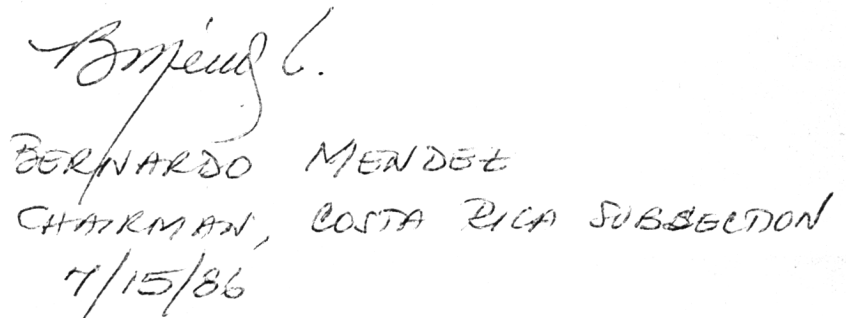 BMéndz C.
BERNARDO MENDEZ
CHAIRMAN, COSTA RICA SUBSECTION
7/15/86